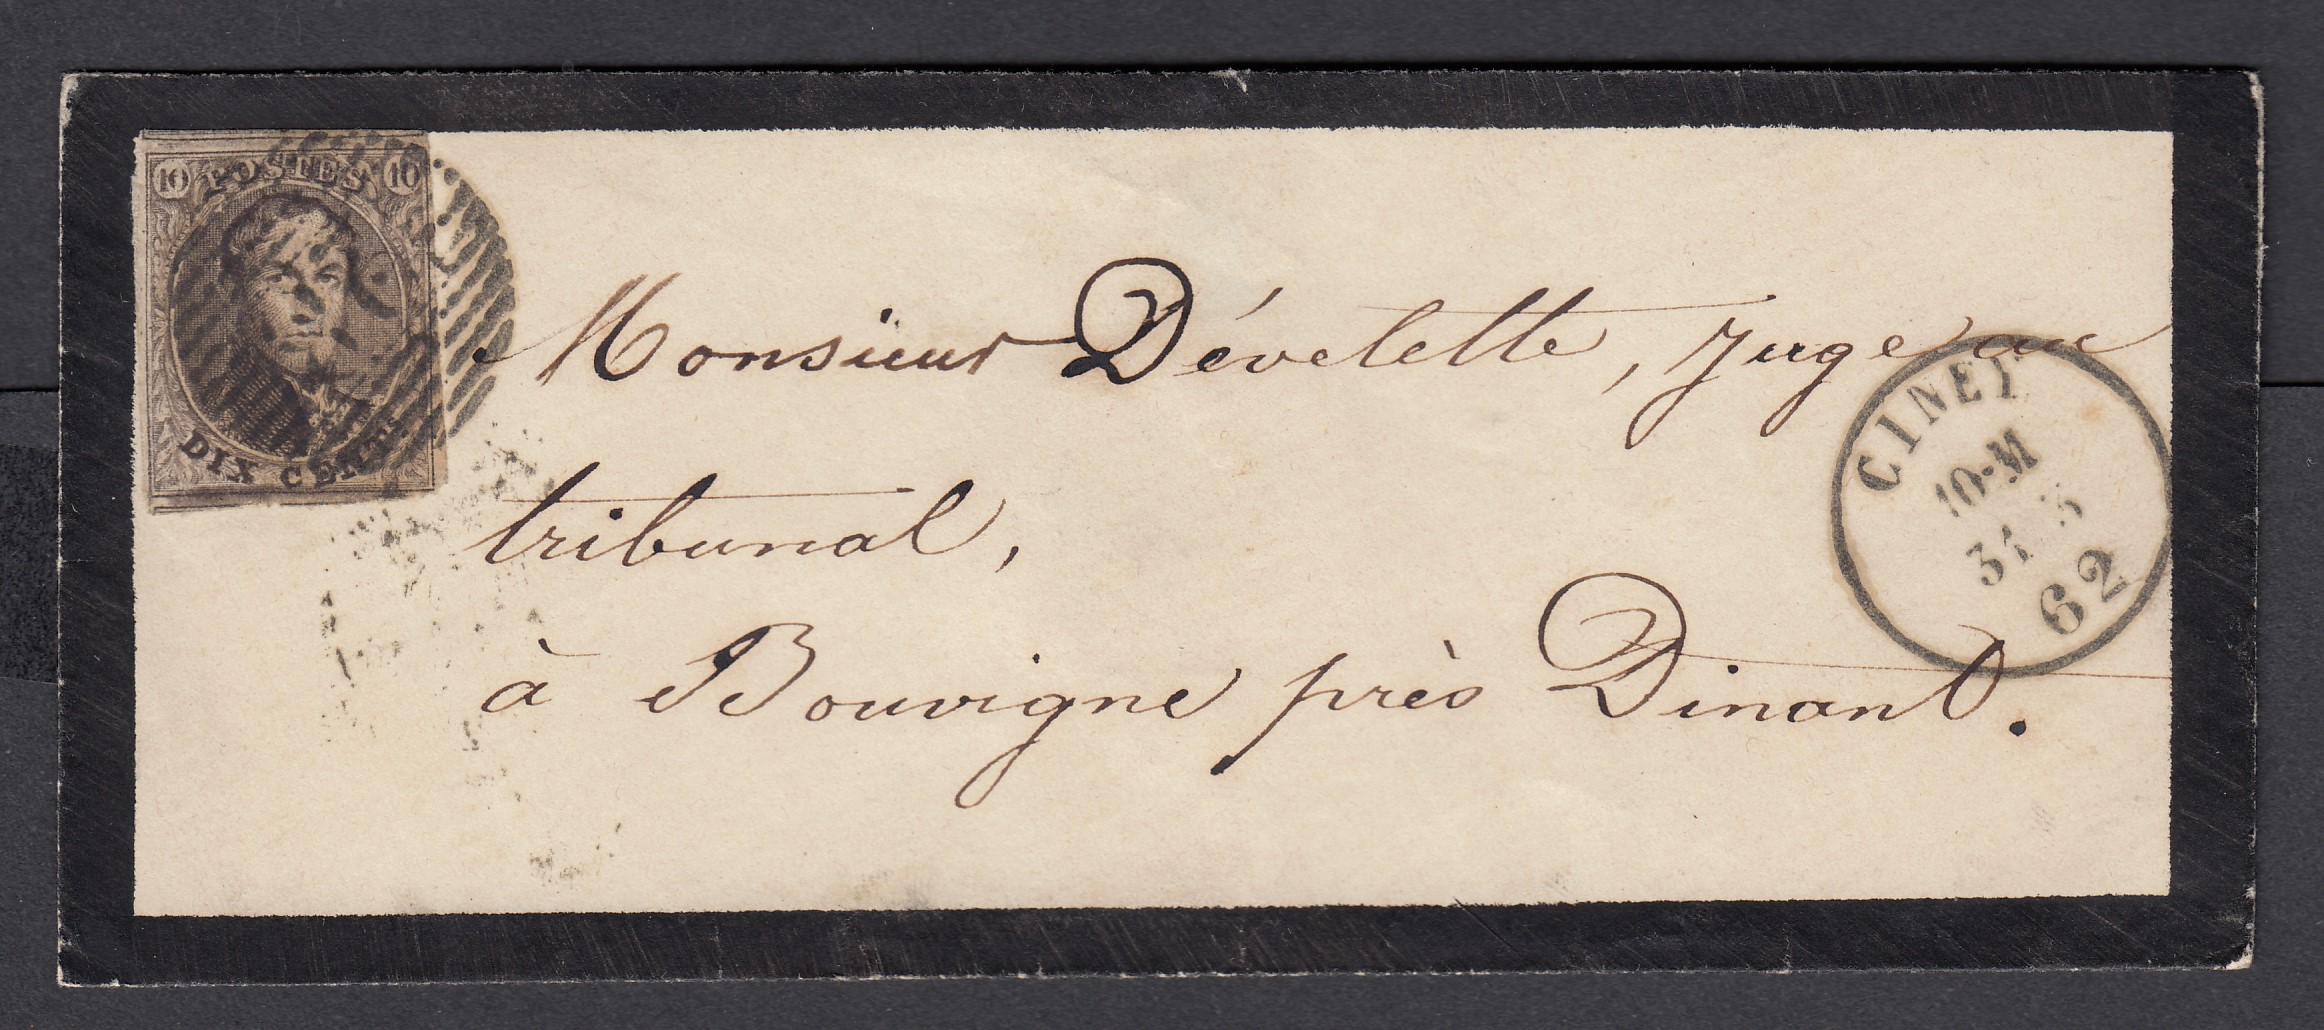 10 POSTES 10
DIX CENT
Monsieur Dévelette, Juge au
tribunal,
à Bouvigne près Dinant.
CINEY
10-M
31 5
62